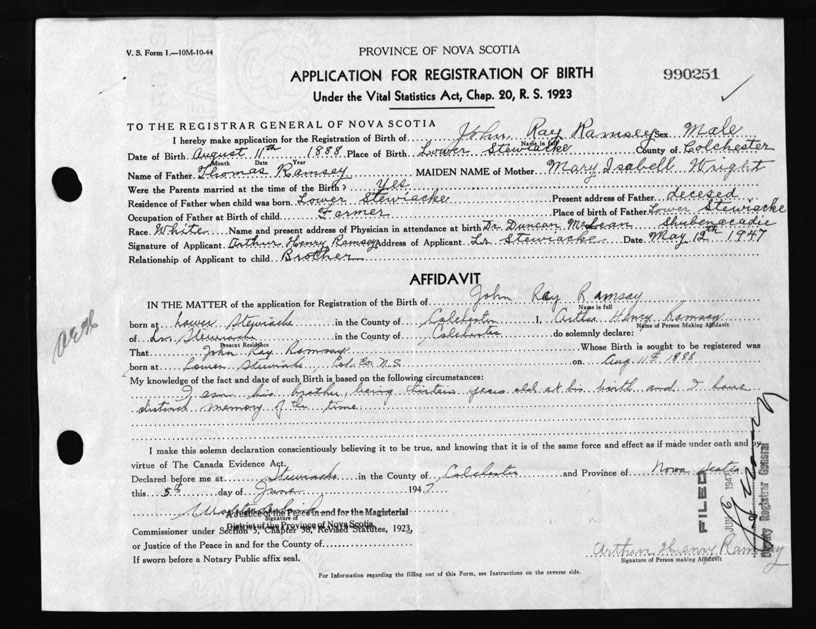 V. S. Form 1.—10M-10-44
PROVINCE OF NOVA SCOTIA
APPLICATION FOR REGISTRATION OF BIRTH
990251
Under the Vital Statistics Act, Chap. 20, R. S. 1923
TO THE REGISTRAR GENERAL OF NOVA SCOTIA
I hereby make application for the Registration of Birth of John Ray Ramsey Sex Male
Name in full
Date of Birth August 11th 1888 Place of Birth Lower Stewiacke County of Colchester
Month Date Year
Name of Father Thomas Ramsey MAIDEN NAME of Mother Mary Isabell Wright
Were the Parents married at the time of the Birth? Yes
Residence of Father when child was born Lower Stewiacke Present address of Father decesed
Occupation of Father at Birth of child Farmer Place of birth of Father Lower Stewiacke
Race White Name and present address of Physician in attendance at birth Dr Duncan McLean Shubenacadie
Signature of Applicant Arthur Henry Ramsey Address of Applicant Lr Stewiacke Date May 12th 1947
Relationship of Applicant to child Brother
AFFIDAVIT
IN THE MATTER of the application for Registration of the Birth of John Ray Ramsay
Name in full
born at Lower Stewiacke in the County of Colchester I, Arthur Henry Ramsay
Name of Person Making Affidavit
of Lr. Stewiacke in the County of Colchester do solemnly declare:
Present Residence
That John Ray Ramsay Whose Birth is sought to be registered was
born at Lower Stewiacke, Col. Co. N.S. on Aug. 11th 1886
My knowledge of the fact and date of such Birth is based on the following circumstances:
I am his brother, being thirteen years old at his birth and I have
distinct memory of the time.
I make this solemn declaration conscientiously believing it to be true, and knowing that it is of the same force and effect as if made under oath and by
virtue of The Canada Evidence Act.
Declared before me at Stewiacke in the County of Colchester and Province of Nova Scotia
this 5th day of June 1947
A Justice of the Peace in and for the Magisterial
Signature of
District of the Province of Nova Scotia
Commissioner under Section 5, Chapter 38, Revised Statutes, 1923,
or Justice of the Peace in and for the County of
If sworn before a Notary Public affix seal.
Arthur Henry Ramsay
Signature of Person making Affidavit
FILED
JUN 6 1947
Deputy Registrar General
For Information regarding the filling out of this Form, see Instructions on the reverse side.